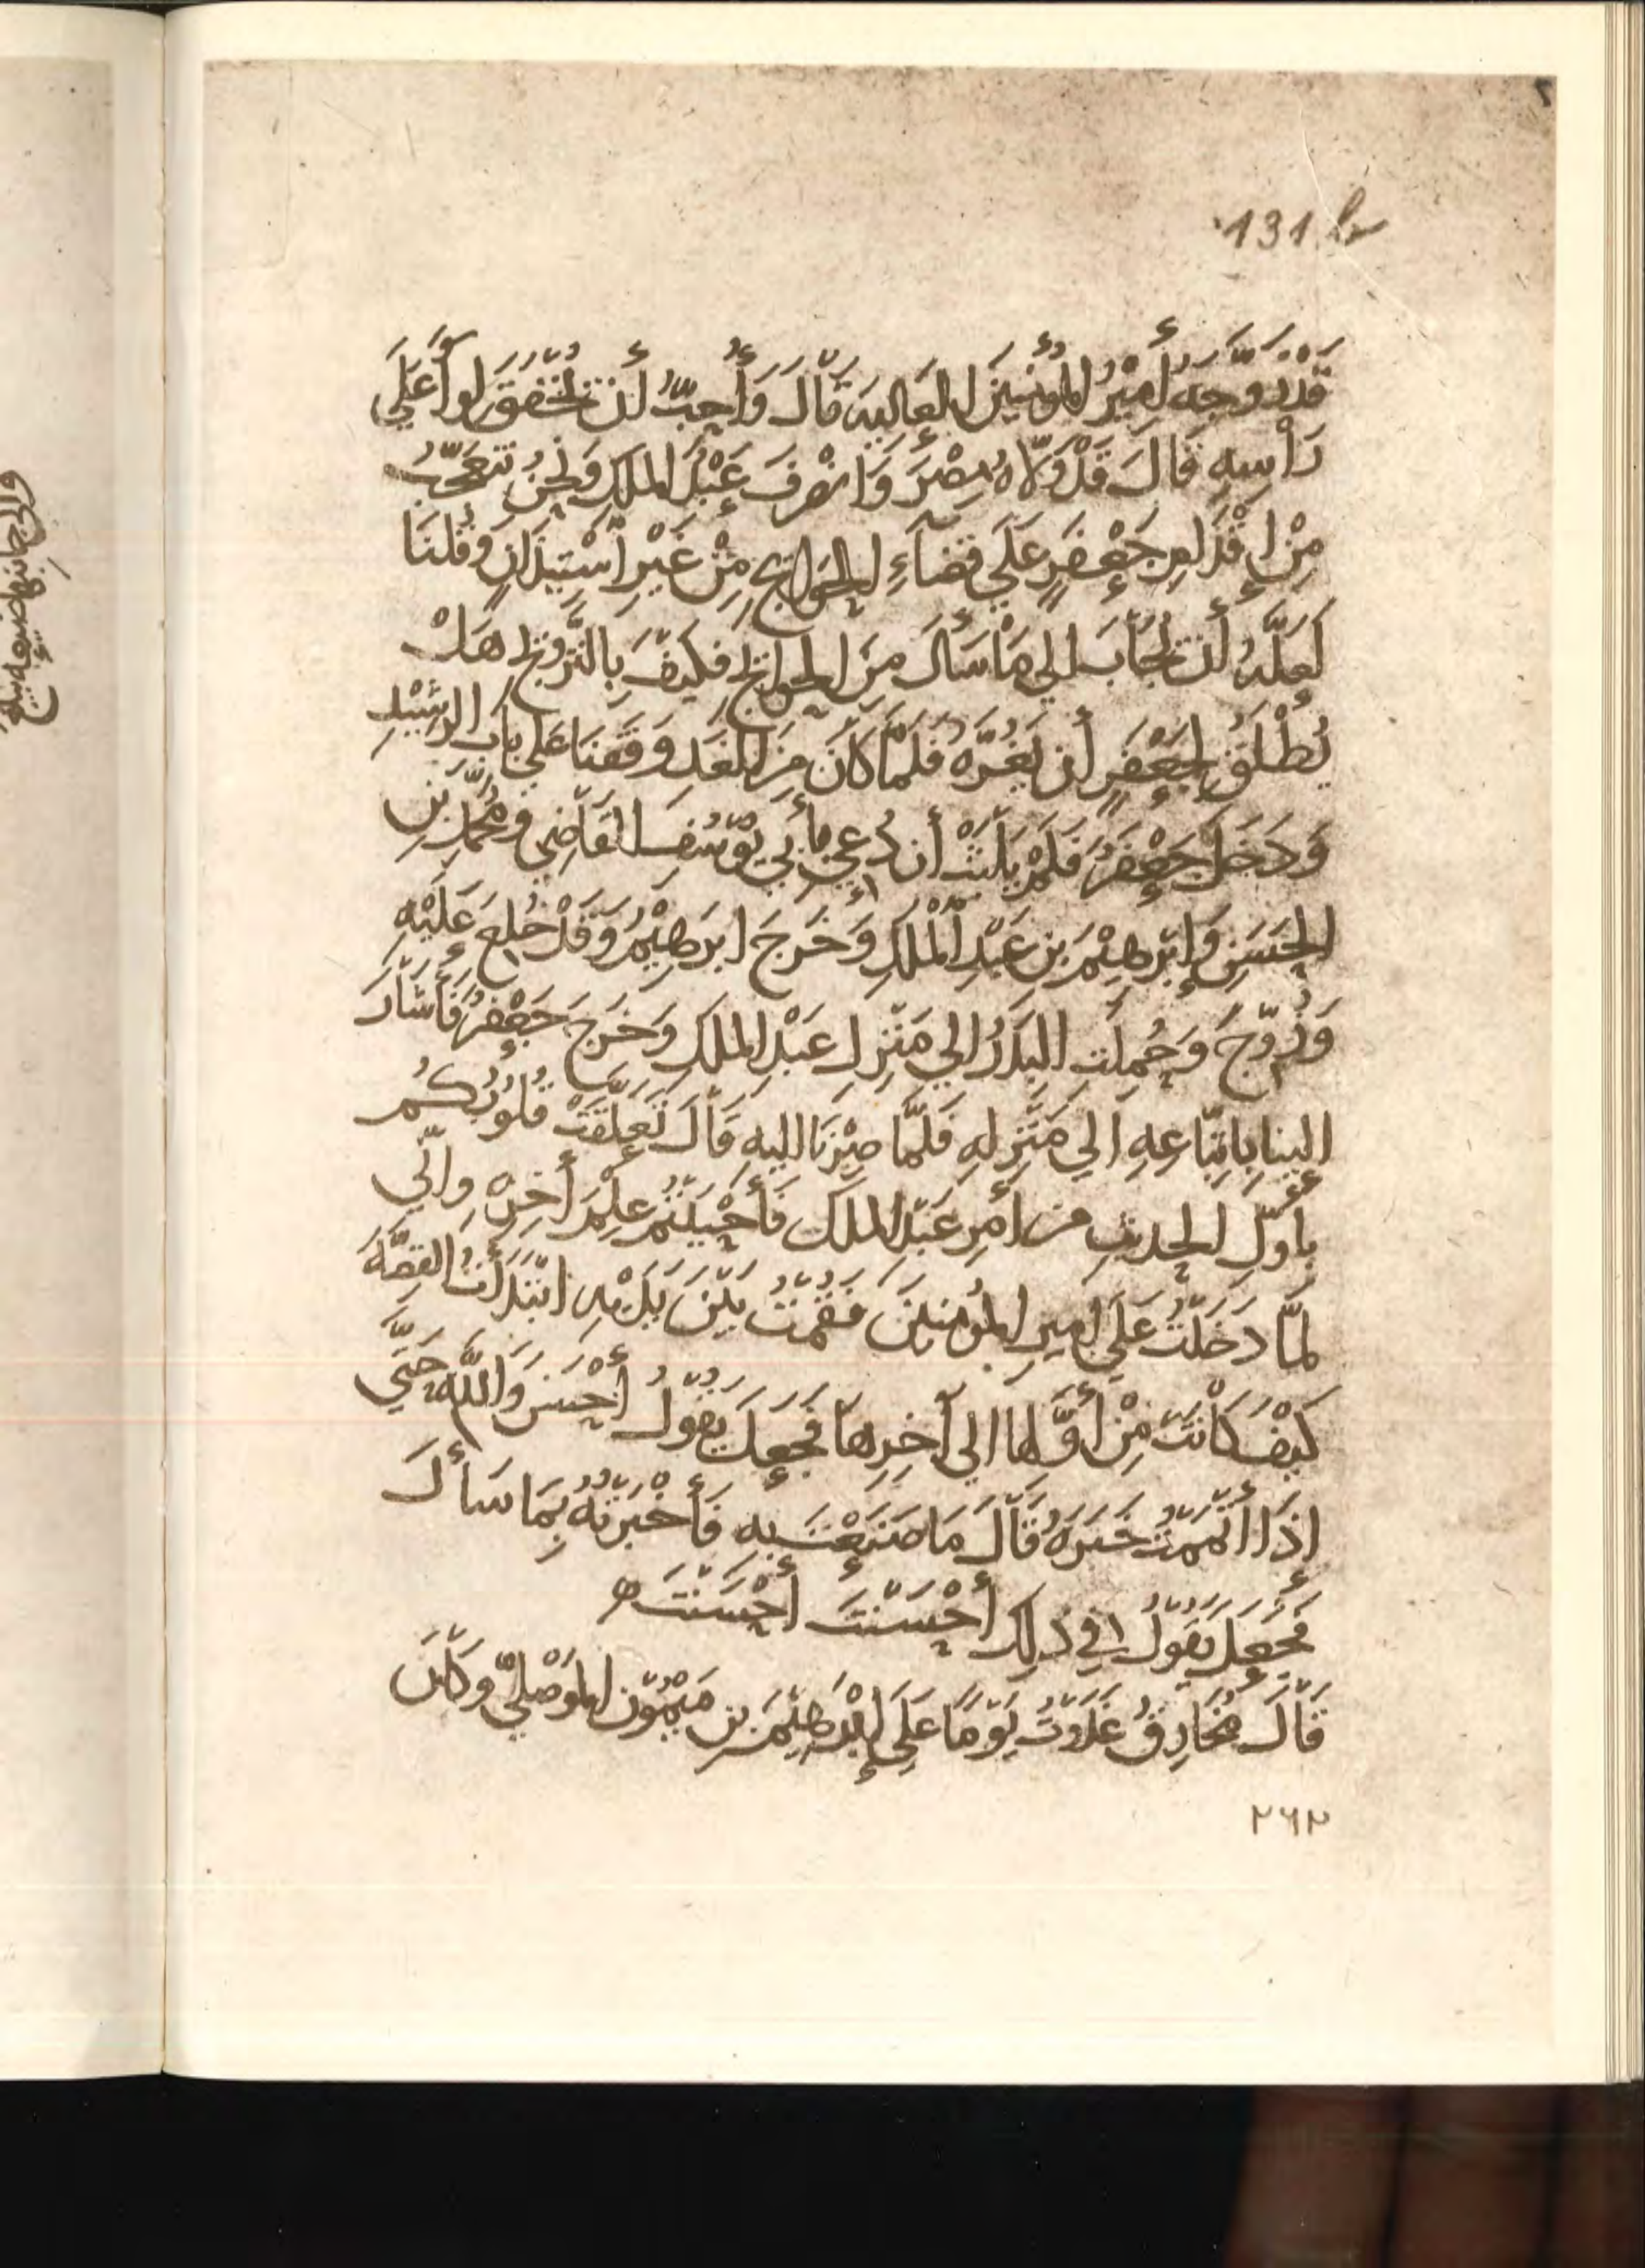 131 b
قَدْ زَوَّجَهُ أَمِيْرُ المُؤْمِنِيْنَ الْعَالِيَة قَالَ وَأُحِبُّ أَنْ تَخْفُقَ لِوَآء عَلَي
رَأْسِهِ قَالَ قَدْ وَلَّاهُ مِصْرَ وَانْصَرَفَ عَبْدُ المَلِكِ وَنَحْنُ نَتَعَجَّبُ
مِنْ إِقْدَامِ جَعْفَرٍ عَلَي قَضَآءِ الحَوَايِجِ مِنْ غَيْرِ اسْتِيذَانٍ وَقُلْنَا
لَعَلَّهُ أَنْ يُجَابَ الي مَا سَأَلَ مِنَ الحَوَايِج فَكَيْفَ بِالتَّزْوِيج هَلْ
يُطْلَقُ لِجَعْفَرٍ أَن يَغُرَّهُ فَلَمَّا كَانَ مِنَ الْغَدِ وَقَفْنَا عَلَي بَابِ الرَّشِيْدِ
وَدَخَلَ جَعْفَرٌ فَلَمْ يَلْبَثْ أَن دُعِيَ بِأَبِي يُوْسُفَ القَاضِي وَمُحَمَّدِ بْنِ
الحَسَنِ وَإِبْرَهِيْمَ بن عَبْدِ الْمَلِكِ وَخَرَجَ ابْرَهِيْمُ وَقَدْ خُلِعَ عَلَيْهِ
وَزُوِّجَ وَحُمِلَت البِدَرُ الي مَنْزِلِ عَبْدِ المَلِكِ وَخَرَجَ جَعْفَرٌ فَأَشَارَ
الينا بِاتِّبَاعِهِ الي مَنْزِلِهِ فَلَمَّا صِرْنَا اليه قَالَ تَعَلَّقَتْ قُلُوْبُكُمْ
بِأَوَّلِ الحديثِ من أَمْرِ عَبْدِ المَلِكَ فَأَحْبَبْتُمْ عِلْمَ أَخِرِهِ وإنّي
لمّا دَخَلْتُ عَلَي امِيرِ المُؤمِنينَ فَقُمْتُ بَيْنَ يَدَيْهِ ابْتَدَأْتُ القِصَّةَ
كَيْفَ كَانَتْ مِنْ أَوَّلِهَا الي آخِرِهَا فَجَعَلَ يَقُوْلُ أَحْسَنَ وَاللَّهِ حَتَّي
إِذَا أَتْمَمْتُ خَبَرَهُ قَالَ مَا صَنَعْتَ بِهِ فَأَخْبَرْتُهُ بِمَا سَأَلَ
فَجَعَلَ يَقُوْلُ فِي ذَلِكَ أَحْسَنْتَ أَحْسَنْتَ ه
قَالَ مُخَارِقٌ غَدَوْتُ يَوْمًا عَلَي إِبْرَهِيْمَ بن مَيْمُوْن المَوْصِلِيّ وكَانَ
٢٦٢